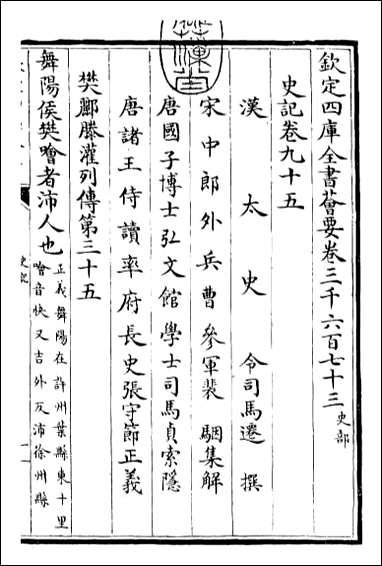 欽定四庫全書薈要卷三千六百七十三 史部
史記卷九十五
漢 太 史 令司馬遷 撰
宋 中 郎 外 兵 曹 參 軍 裴 駰集解
唐國子博士弘文館學士司馬貞索隱
唐諸王侍讀率府長史張守節正義
樊酈滕灌列傳第三十五
舞陽侯樊噲者沛人也
正義舞陽在許州葉縣東十里
噲音快又吉外反沛徐州縣